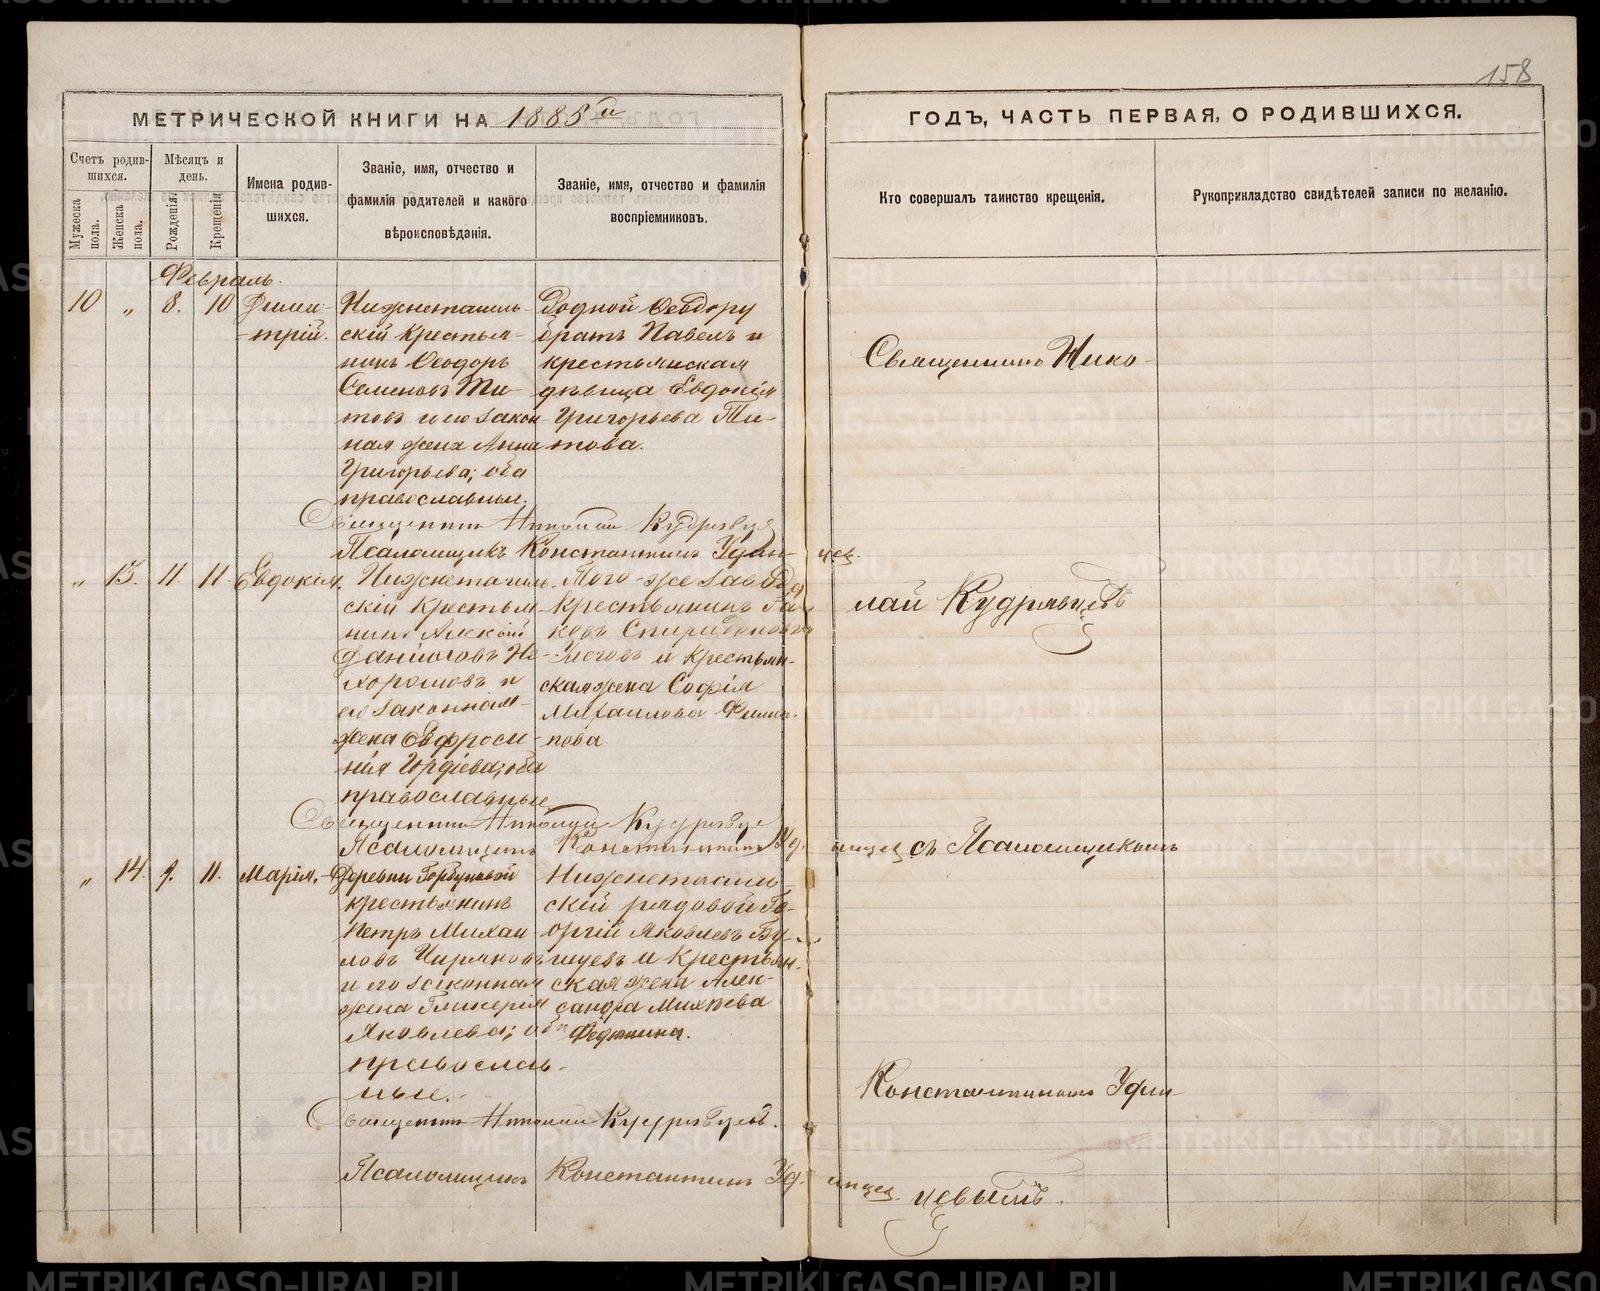 158
МЕТРИЧЕСКОЙ КНИГИ НА 1885 й
ГОДЪ, ЧАСТЬ ПЕРВАЯ, О РОДИВШИХСЯ.
Счетъ родив-
шихся.
Мужеска пола.
Женска пола.
Мѣсяцъ и
день.
Рожденія.
Крещенія.
Имена родив-
шихся.
Званіе, имя, отчество и
фамилія родителей и какого
вѣроисповѣданія.
Званіе, имя, отчество и фамилія
воспріемниковъ.
Кто совершалъ таинство крещенія.
Рукоприкладство свидѣтелей записи по желанію.
Февраль.
10 „ 8. 10 Дими-
-трій.
Нижнетагиль-
скій крестья-
нинъ Ѳеодоръ
Семеновъ Ти-
товъ и его закон
ная жена Анна
Григорьева; оба
православные.
Родной Ѳеодору
братъ Павелъ и
крестьянская
дѣвица Евдокія
Григорьева Ти-
това.
Священникъ Николай Кудрявце
Псаломщикъ Константинъ Удин-цев.
„ 13. 11 11. Евдокія.
Нижнетагиль-
скій крестья-
нинъ Алексій
Даниловъ Не-
хорошовъ и
его законная
жена Евфроси-
нія Гордіева; оба
православные
Того-же завода
крестьянинъ Іа
ковъ Спиридоновъ
и крестьян-
ская жена Софія
Михаилова Филип-
пова
Священникъ Николай Кудрявце
Псаломщикъ Константинъ Уд-инцев
„ 14. 9. 11. Марія.
Деревни Горбуновой
крестьянинъ
Петръ Михаи-
ловъ Чиряковъ
и его законная
жена Гликерія
Яковлева; оба
православ-
ные.
Нижнетагиль-
скій рядовой Ге-
оргій Яковлевъ
и крестьян-
ская жена Алек-
сандра Михѣева
Федюнина.
Священникъ Николай Кудрявцевъ.
Псаломщикъ Константинъ Уд-инцев.
Священникъ Нико-
лай Кудрявцевъ
съ Псаломщикомъ
Константиномъ Удин-
цевымъ.
METRIKI.GASO-URAL.RU